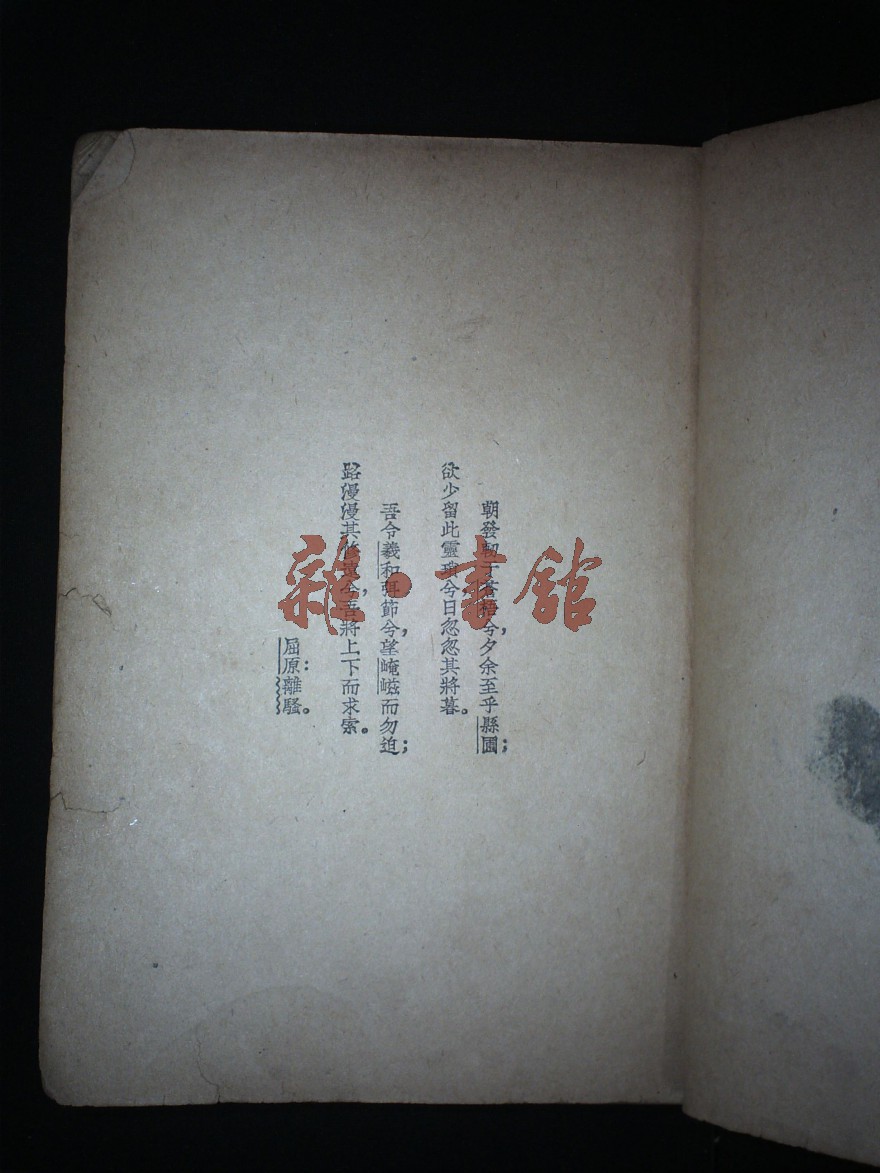 朝發軔于蒼梧兮，夕余至乎縣圃；
欲少留此靈瑣兮日忽忽其將暮。
吾令羲和弭節兮，望崦嵫而勿迫；
路漫漫其修遠兮，吾將上下而求索。
屈原：離騷。
雜·書館